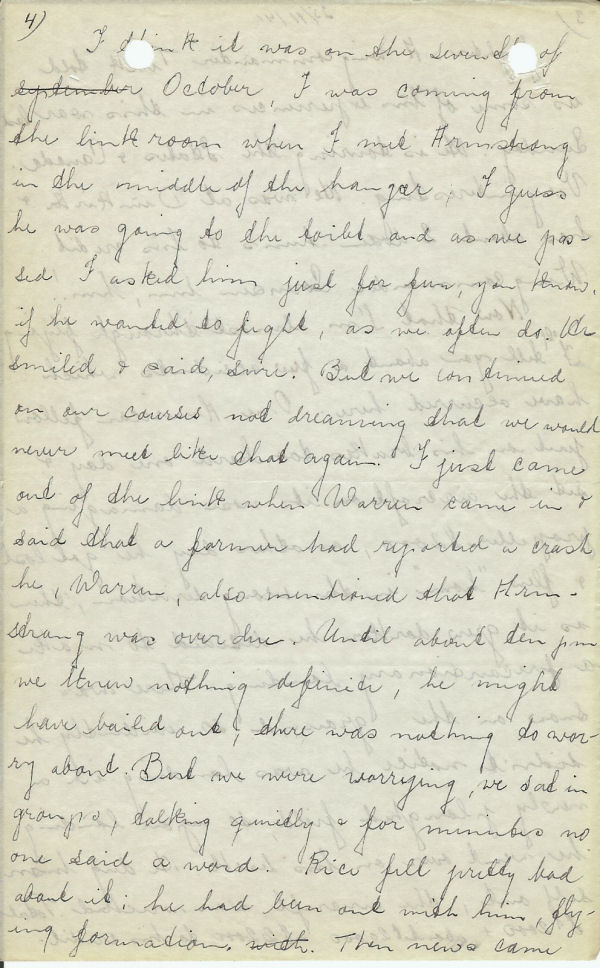 4)
I think it was on the seventh of
september October, I was coming from
the link room when I met Armstrong
in the middle of the hanger, I guess
he was going to the toilet and as we pas-
sed I asked him just for fun, you know,
if he wanted to fight, as we often do. He
smiled & said, sure. But we continued
on our courses not dreaming that we would
never meet like that again. I just came
out of the link when Warren came in &
said that a farmer had reported a crash
he, Warren, also mentioned that Arm-
strong was overdue. Until about ten pm
we knew nothing definite, he might
have bailed out, there was nothing to wor-
ry about. But we were worrying, we sat in
groups, talking quietly & for minutes no
one said a word. Rice felt pretty bad
about it; he had been out with him, fly-
ing formation. with. Then news came